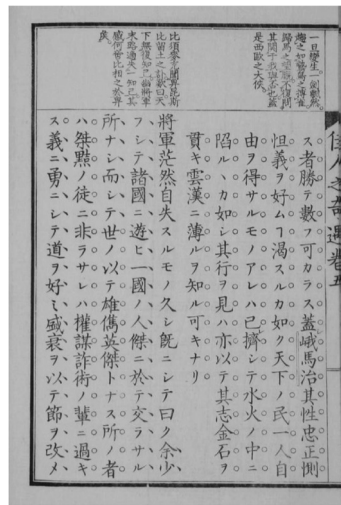 佳人之奇遇卷五
一旦變生一
其關于我與否也蓋
是西歐之大俠
比留土之訃歎曰天
下無復知己將軍
末路適失一知己其
感何啻比相之於畢
矣
ス者勝テ數フ可カラス蓋峨馬治其性忠正惻
怛義ヲ好ムヿ渴スルカ如ク天下ノ民一人自
由ヲ得サルモノアレハ己擠シテ水火ノ中ニ
陷ルヽカ如シ其行ヲ見ハ亦以テ其志金石ヲ
貫キ雲漢ニ薄ルヲ知ル可キナリ
將軍茫然自失スルモノ久シ旣ニシテ曰ク余少
フシテ諸國ニ遊ヒ一國ノ人傑ニ於テ交ラサル
所ナシ而シテ世ノ以テ雄儁英傑トナス所ノ者
ハ桀黠ノ徒ニ非ラサレハ權謀詐術ノ輩ニ過キ
ス義ニ勇ニシテ道ヲ好ミ盛衰ヲ以テ節ヲ改メ